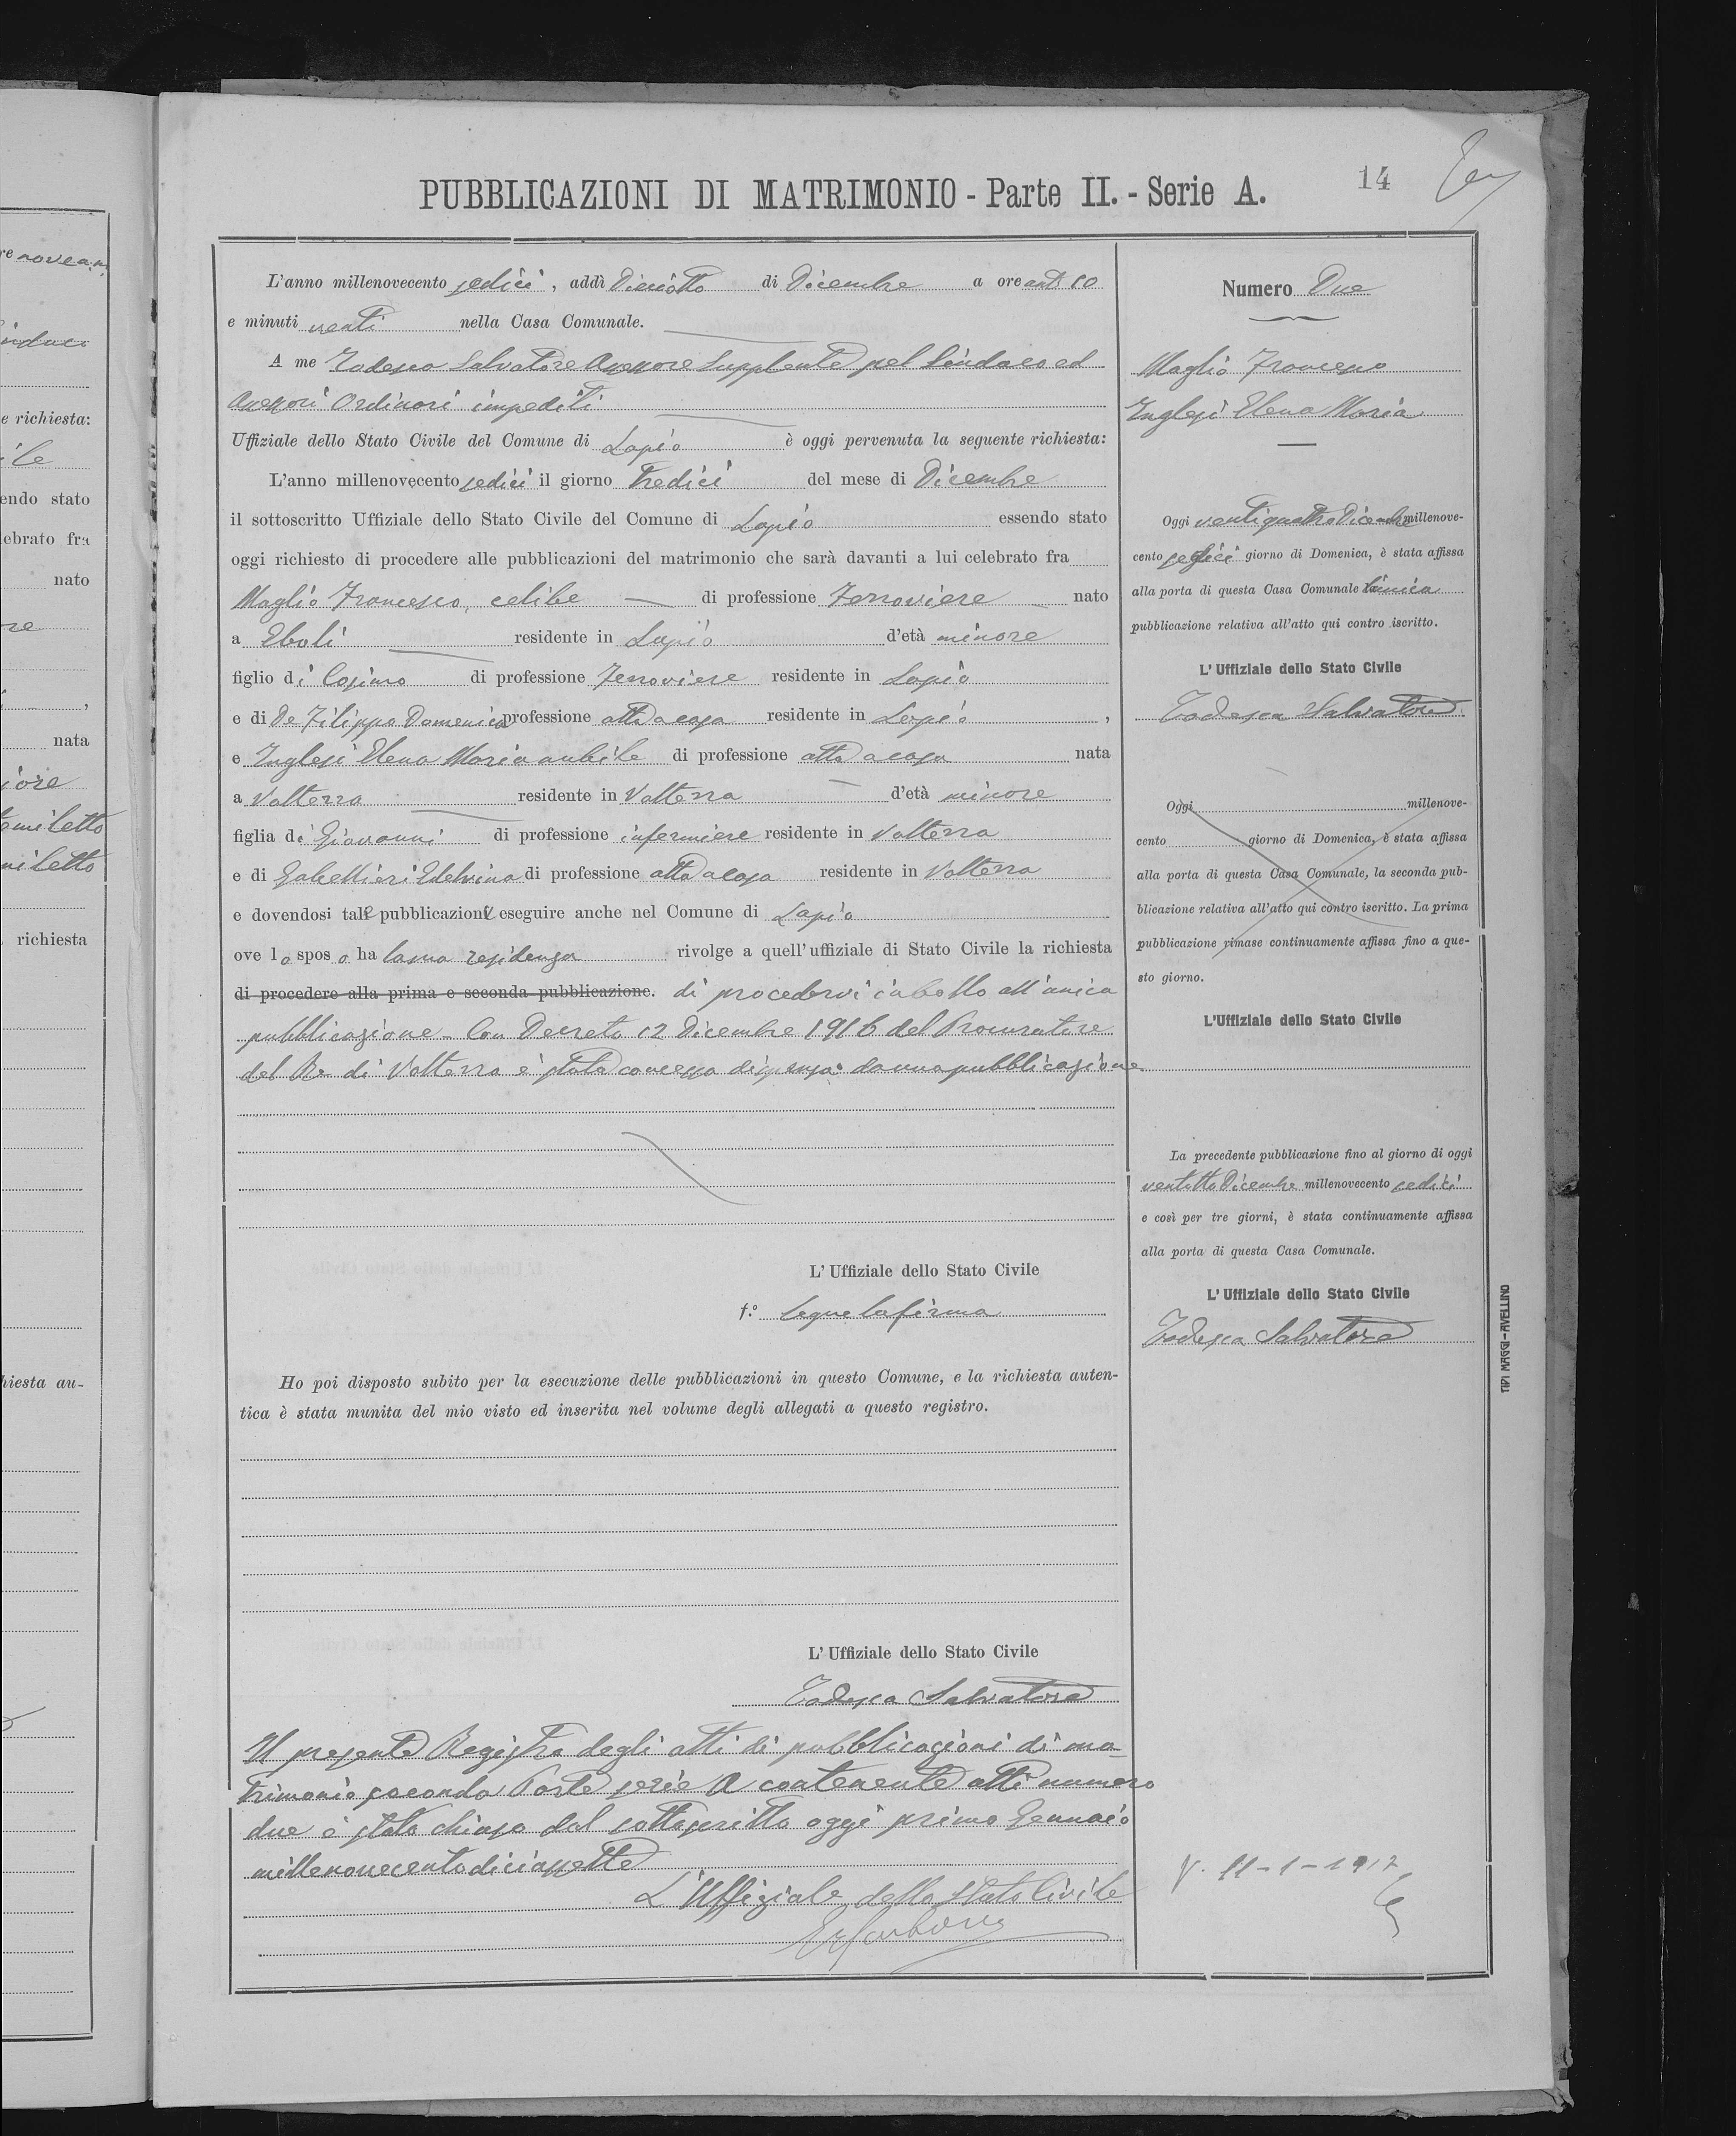 PUBBLICAZIONI DI MATRIMONIO - Parte II. - Serie A.
14
L'anno millenovecento sedici, addì Diciotto di Dicembre a ore ant 10
e minuti venti nella Casa Comunale.
A me Todesca Salvatore Assessore Supplente pel Sindaco ed
Assessori Ordinari impediti
Uffiziale dello Stato Civile del Comune di Lapio è oggi pervenuta la seguente richiesta:
L'anno millenovecento sedici il giorno tredici del mese di Dicembre
il sottoscritto Uffiziale dello Stato Civile del Comune di Lapio essendo stato
oggi richiesto di procedere alle pubblicazioni del matrimonio che sarà davanti a lui celebrato fra
Maglio Francesco, celibe di professione Ferroviere nato
a Eboli residente in Lapio d'età minore
figlio di Cosimo di professione Ferroviere residente in Lapio
e di De Filippo Domenica professione atta a casa residente in Lapio,
e Inglesi Elena Maria nubile di professione atta a casa nata
a Volterra residente in Volterra d'età minore
figlia di Giovanni di professione infermiere residente in Volterra
e di Galcettieri Edelvina di professione atta a casa residente in Volterra
e dovendosi tale pubblicazione eseguire anche nel Comune di Lapio
ove lo sposo ha la sua residenza rivolge a quell'uffiziale di Stato Civile la richiesta
di procedere alla prima e seconda pubblicazione. di procedervi all'unica
pubblicazione - Con Decreto 12 Dicembre 1916 del Procuratore
del Re di Volterra è stata concessa dispensa da una pubblicazione
L'Uffiziale dello Stato Civile
f.o Segue la firma
Ho poi disposto subito per la esecuzione delle pubblicazioni in questo Comune, e la richiesta auten-
tica è stata munita del mio visto ed inserita nel volume degli allegati a questo registro.
L'Uffiziale dello Stato Civile
Todesca Salvatore
Il presente Registro degli atti di pubblicazioni di ma-
trimonio seconda Parte serie A contenente atti numero
due è stato chiuso dal sottoscritto oggi primo Gennaio
millenovecentodiciassette
L'Uffiziale dello Stato Civile
Numero Due
Maglio Francesco
Inglesi Elena Maria
Oggi ventiquattro Dicembre millenove-
cento sedici giorno di Domenica, è stata affissa
alla porta di questa Casa Comunale l'unica
pubblicazione relativa all'atto qui contro iscritto.
L'Uffiziale dello Stato Civile
Todesca Salvatore
Oggi millenove-
cento giorno di Domenica, è stata affissa
alla porta di questa Casa Comunale, la seconda pub-
blicazione relativa all'atto qui contro iscritto. La prima
pubblicazione rimase continuamente affissa fino a que-
sto giorno.
L'Uffiziale dello Stato Civile
La precedente pubblicazione fino al giorno di oggi
ventotto Dicembre millenovecento sedici
e così per tre giorni, è stata continuamente affissa
alla porta di questa Casa Comunale.
L'Uffiziale dello Stato Civile
Todesca Salvatore
V. 11-1-1917
TIPI MAGGI - AVELLINO
re
e richiesta:
endo stato
lebrato fra
nato
,
nata
richiesta
hiesta au-